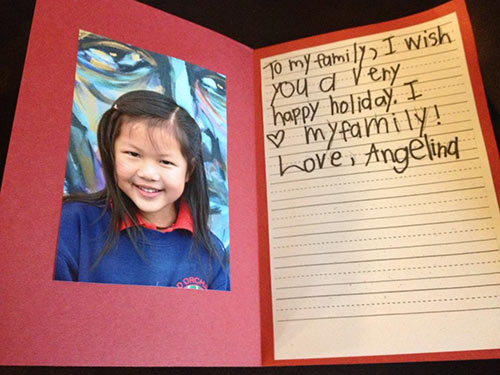 To my family, I wish
you a very
happy holiday. I
♡ my family!
Love, Angelina